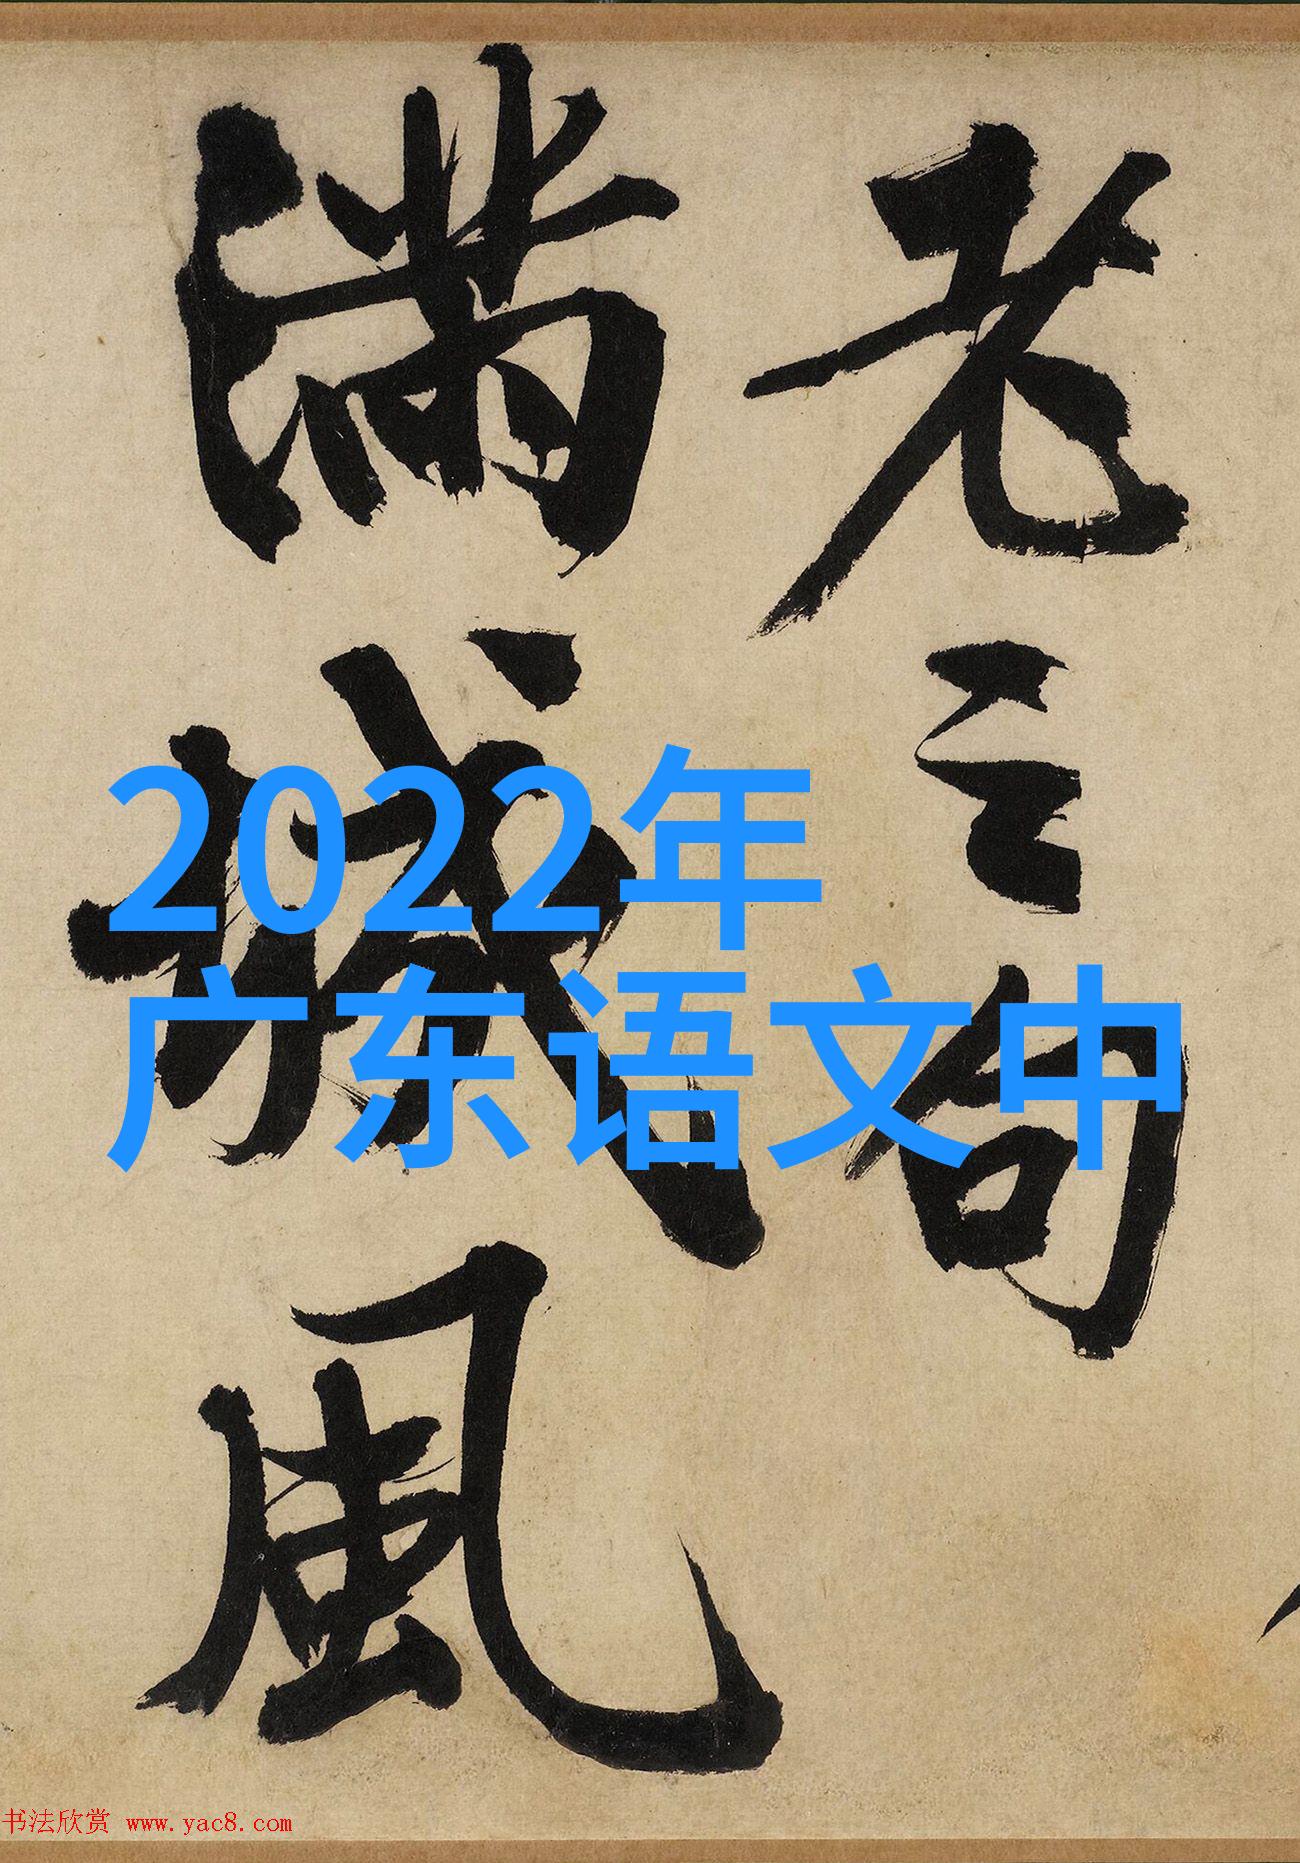 老之句
满城風
2022年
广东语文中
书法欣赏 www.yac8.com